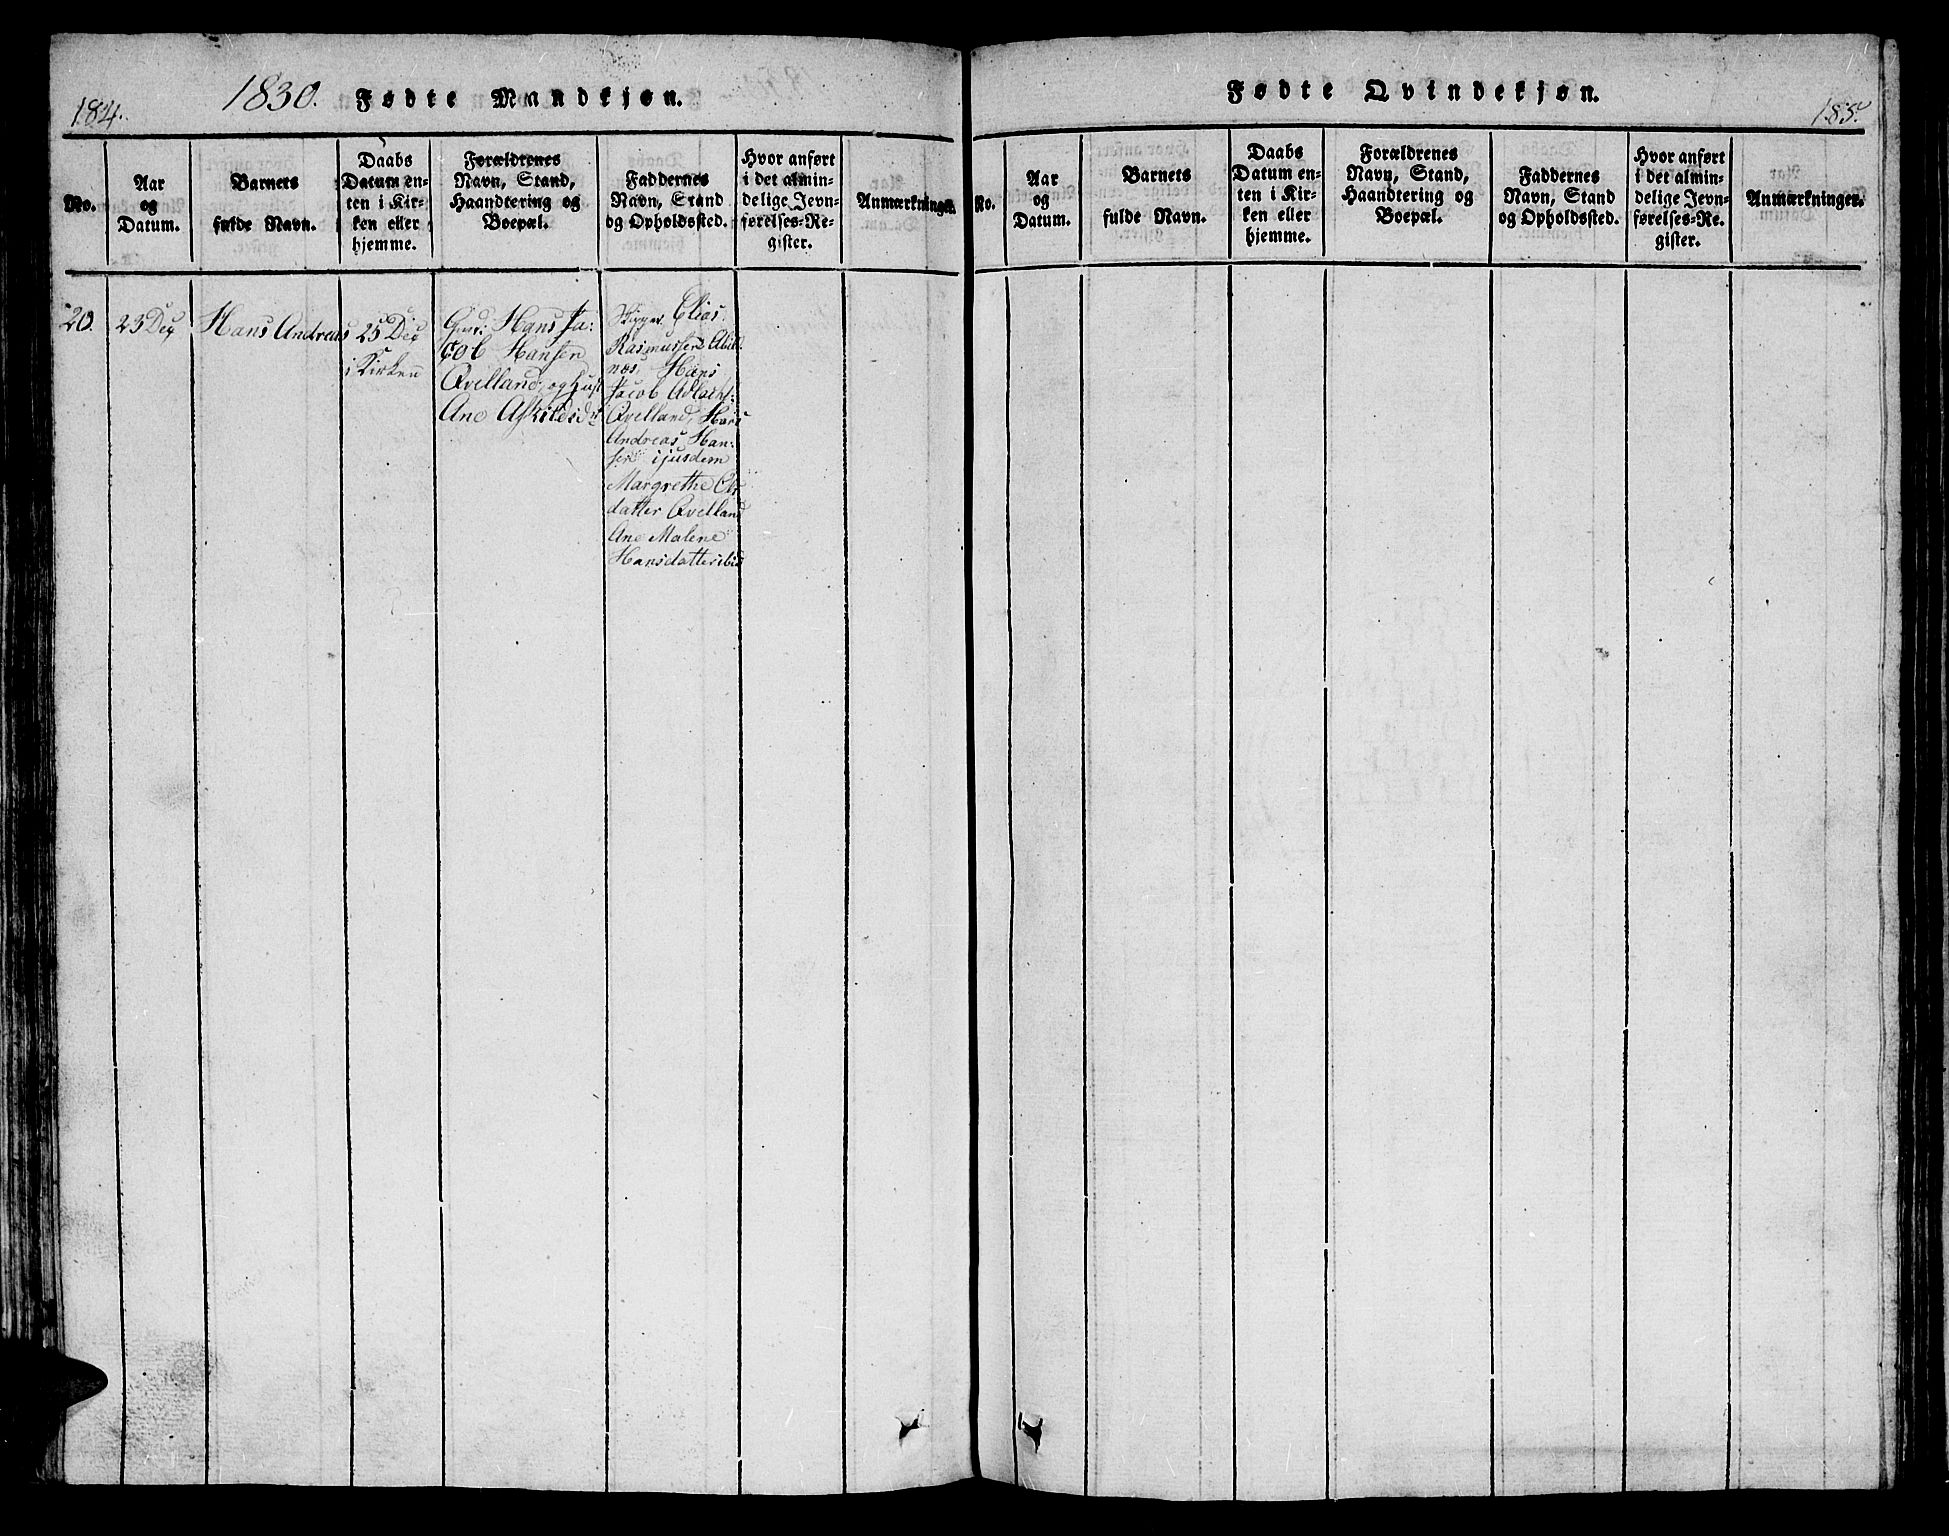 184.
1830. Fødte Mandkjøn.
No.
Aar
og
Datum.
Barnets
fulde Navn.
Daabs
Datum en-
ten i Kir-
ken eller
hjemme.
Forældrenes
Navn, Stand,
Haandtering og
Boepæl.
Faddernes
Navn, Stand
og Opholdssted.
Hvor anført
i det almin-
delige Jevn-
førelses-Re-
gister.
Anmærkninger.
20.
23 Dec
Hans Andreas
25 Dec
i Kirken
Hans Ja:
cob Hansen
Qvelland, og Hust
Ane Askildsd
Skipper Elias
Rasmussen Abel
næs, Hans
Jacob
Qvelland, Hans
Andreas Han-
sen ijusdem
Margrethe
datter Qvelland
Ane Malene
Hansdatter ibid
Fødte Qvindekjøn.
185.
No.
Aar
og
Datum.
Barnets
fulde Navn.
Daabs
Datum en-
ten i Kir-
ken eller
hjemme.
Forældrenes
Navn, Stand,
Haandtering og
Boepæl.
Faddernes
Navn, Stand
og Opholdssted.
Hvor anført
i det almin-
delige Jevn-
førelses-Re-
gister.
Anmærkninger.